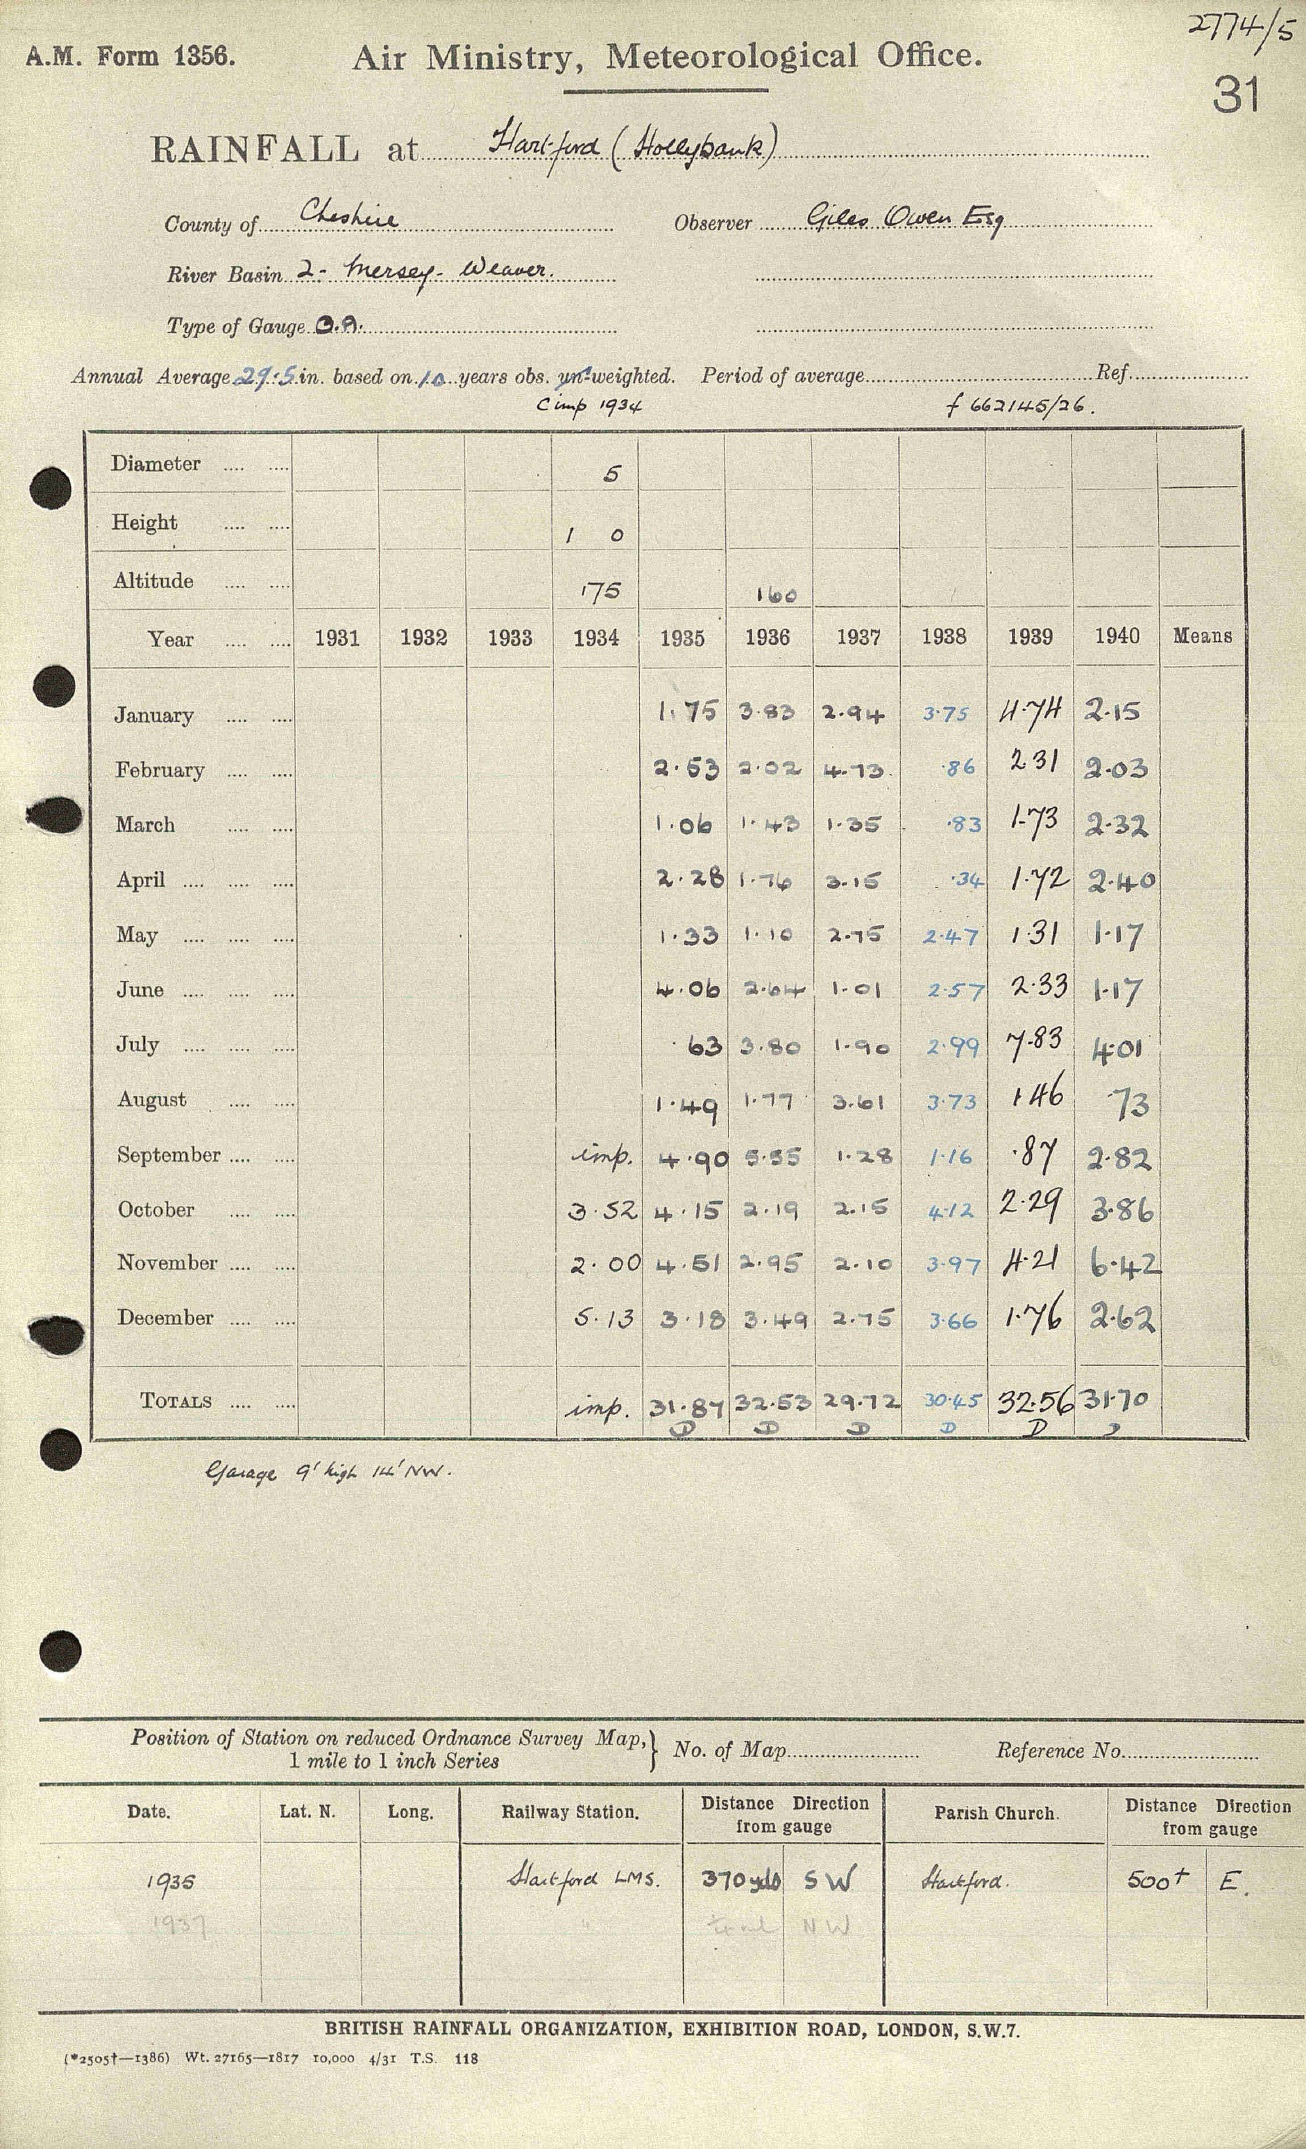 2774/5
A.M. Form 1356. Air Ministry, Meteorological Office.
31
RAINFALL at Hartford (Hollybank)
County of Cheshire Observer Giles Owen Esq
River Basin 2- Mersey- Weaver.
Type of Gauge
Annual Average 29.5 in. based on 10 years obs. un-weighted. Period of average Ref.
imp 1934 f 662145/26.
Diameter .... .... 5
Height .... .... 1 0
Altitude .... .... 175 160
Year .... .... 1931 1932 1933 1934 1935 1936 1937 1938 1939 1940 Means
January .... .... 1.75 3.83 2.94 3.75 4.74 2.15
February .... .... 2.53 2.02 4.73 .86 2 31 2.03
March .... .... 1.06 1.43 1.35 .83 1.73 2.32
April .... .... .... 2.28 1.76 3.15 .34 1.72 2.40
May .... .... .... 1.33 1.10 2.75 2.47 1.31 1.17
June .... .... .... 4.06 2.64 1.01 2.57 2.33 1.17
July .... .... .... .63 3.80 1.90 2.99 7.83 4.01
August .... .... 1.49 1.77 3.61 3.73 1 46 .73
September .... .... imp. 4.90 5.55 1.28 1.16 .87 2.82
October .... .... 3.52 4.15 2.19 2.15 4.12 2.29 3.86
November .... .... 2.00 4.51 2.95 2.10 3.97 4.21 6.42
December .... .... 5.13 3.18 3.49 2.75 3.66 1.76 2.62
TOTALS .... .... imp. 31.87 32.53 29.72 30.45 32.56 31.70
D D D D D
Garage 9' high 14' NW.
Position of Station on reduced Ordnance Survey Map, 1 mile to 1 inch Series } No. of Map Reference No.
Date. Lat. N. Long. Railway Station. Distance Direction from gauge Parish Church. Distance Direction from gauge
1935 Hartford LMS. 370 yds SW Hartford. 500† E.
1937 " NW
BRITISH RAINFALL ORGANIZATION, EXHIBITION ROAD, LONDON, S.W.7.
(*2505†—1386) Wt. 27165—1817 10,000 4/31 T.S. 118